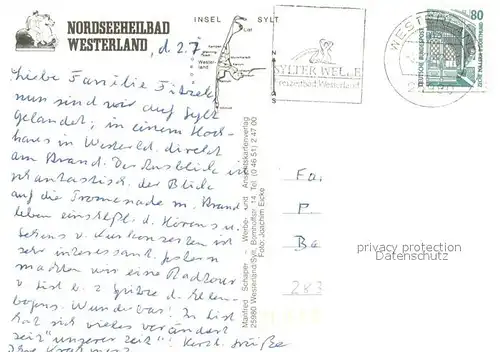 NORDSEEHEILBAD
WESTERLAND, d. 2.7
INSEL SYLT
List
Westerland
N
S
SYLTER WELLE
Westerland
WESTERLAND
80
DEUTSCHE BUNDESPOST
Liebe Familie
nun sind wir auf Sylt
gelandet; in einem Hoch-
haus in Westerld. direkt
am Strand. Der Ausblick ist
phantastisch, der Blick
auf die Promenade m. Strand
leben einschl. d. Hörens u.
Sehens v. Kurkonzerten ist
sehr interessant. Gestern
machten wir eine Radtour
v. List b. z. Spitze d. Ellen-
bogens. Wunderbar! In List
hat sich vieles verändert
seit "unserer Zeit"! Herzl. Grüße
Ihre
Manfred Schaper - Werbe- und Ansichtskartenverlag
25980 Westerland/Sylt, Bötticherstr. 14, Tel. (0 46 51) 2 47 00
Foto: Joachim Eicke
Fa.
P
Ba
privacy protection
Datenschutz
283